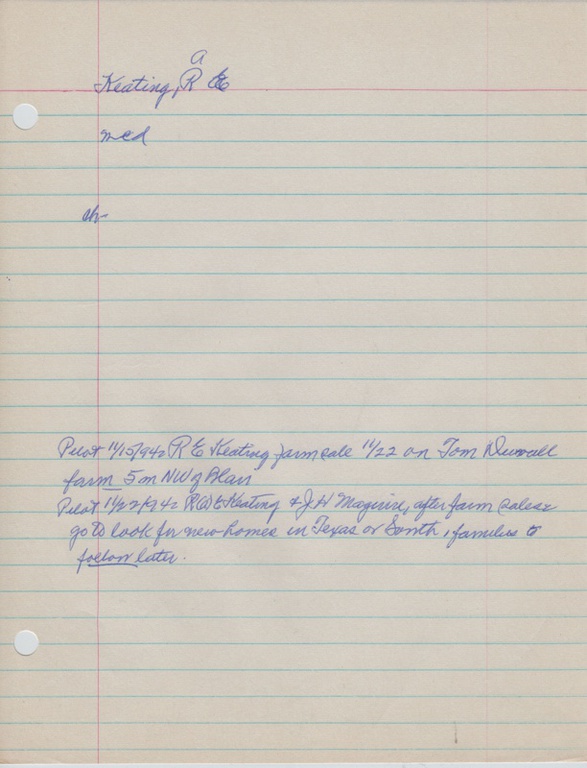 a
Keating, R E
med
ch-
Pilot 11/15/94: R E Keating farm sale 11/22 on Tom Duvall
farm 5 m NW of Blair
Pilot 11/22/94: R(a) E Keating & J H Maguire, after farm sales
go to look for new homes in Texas or South, families to
follow later.